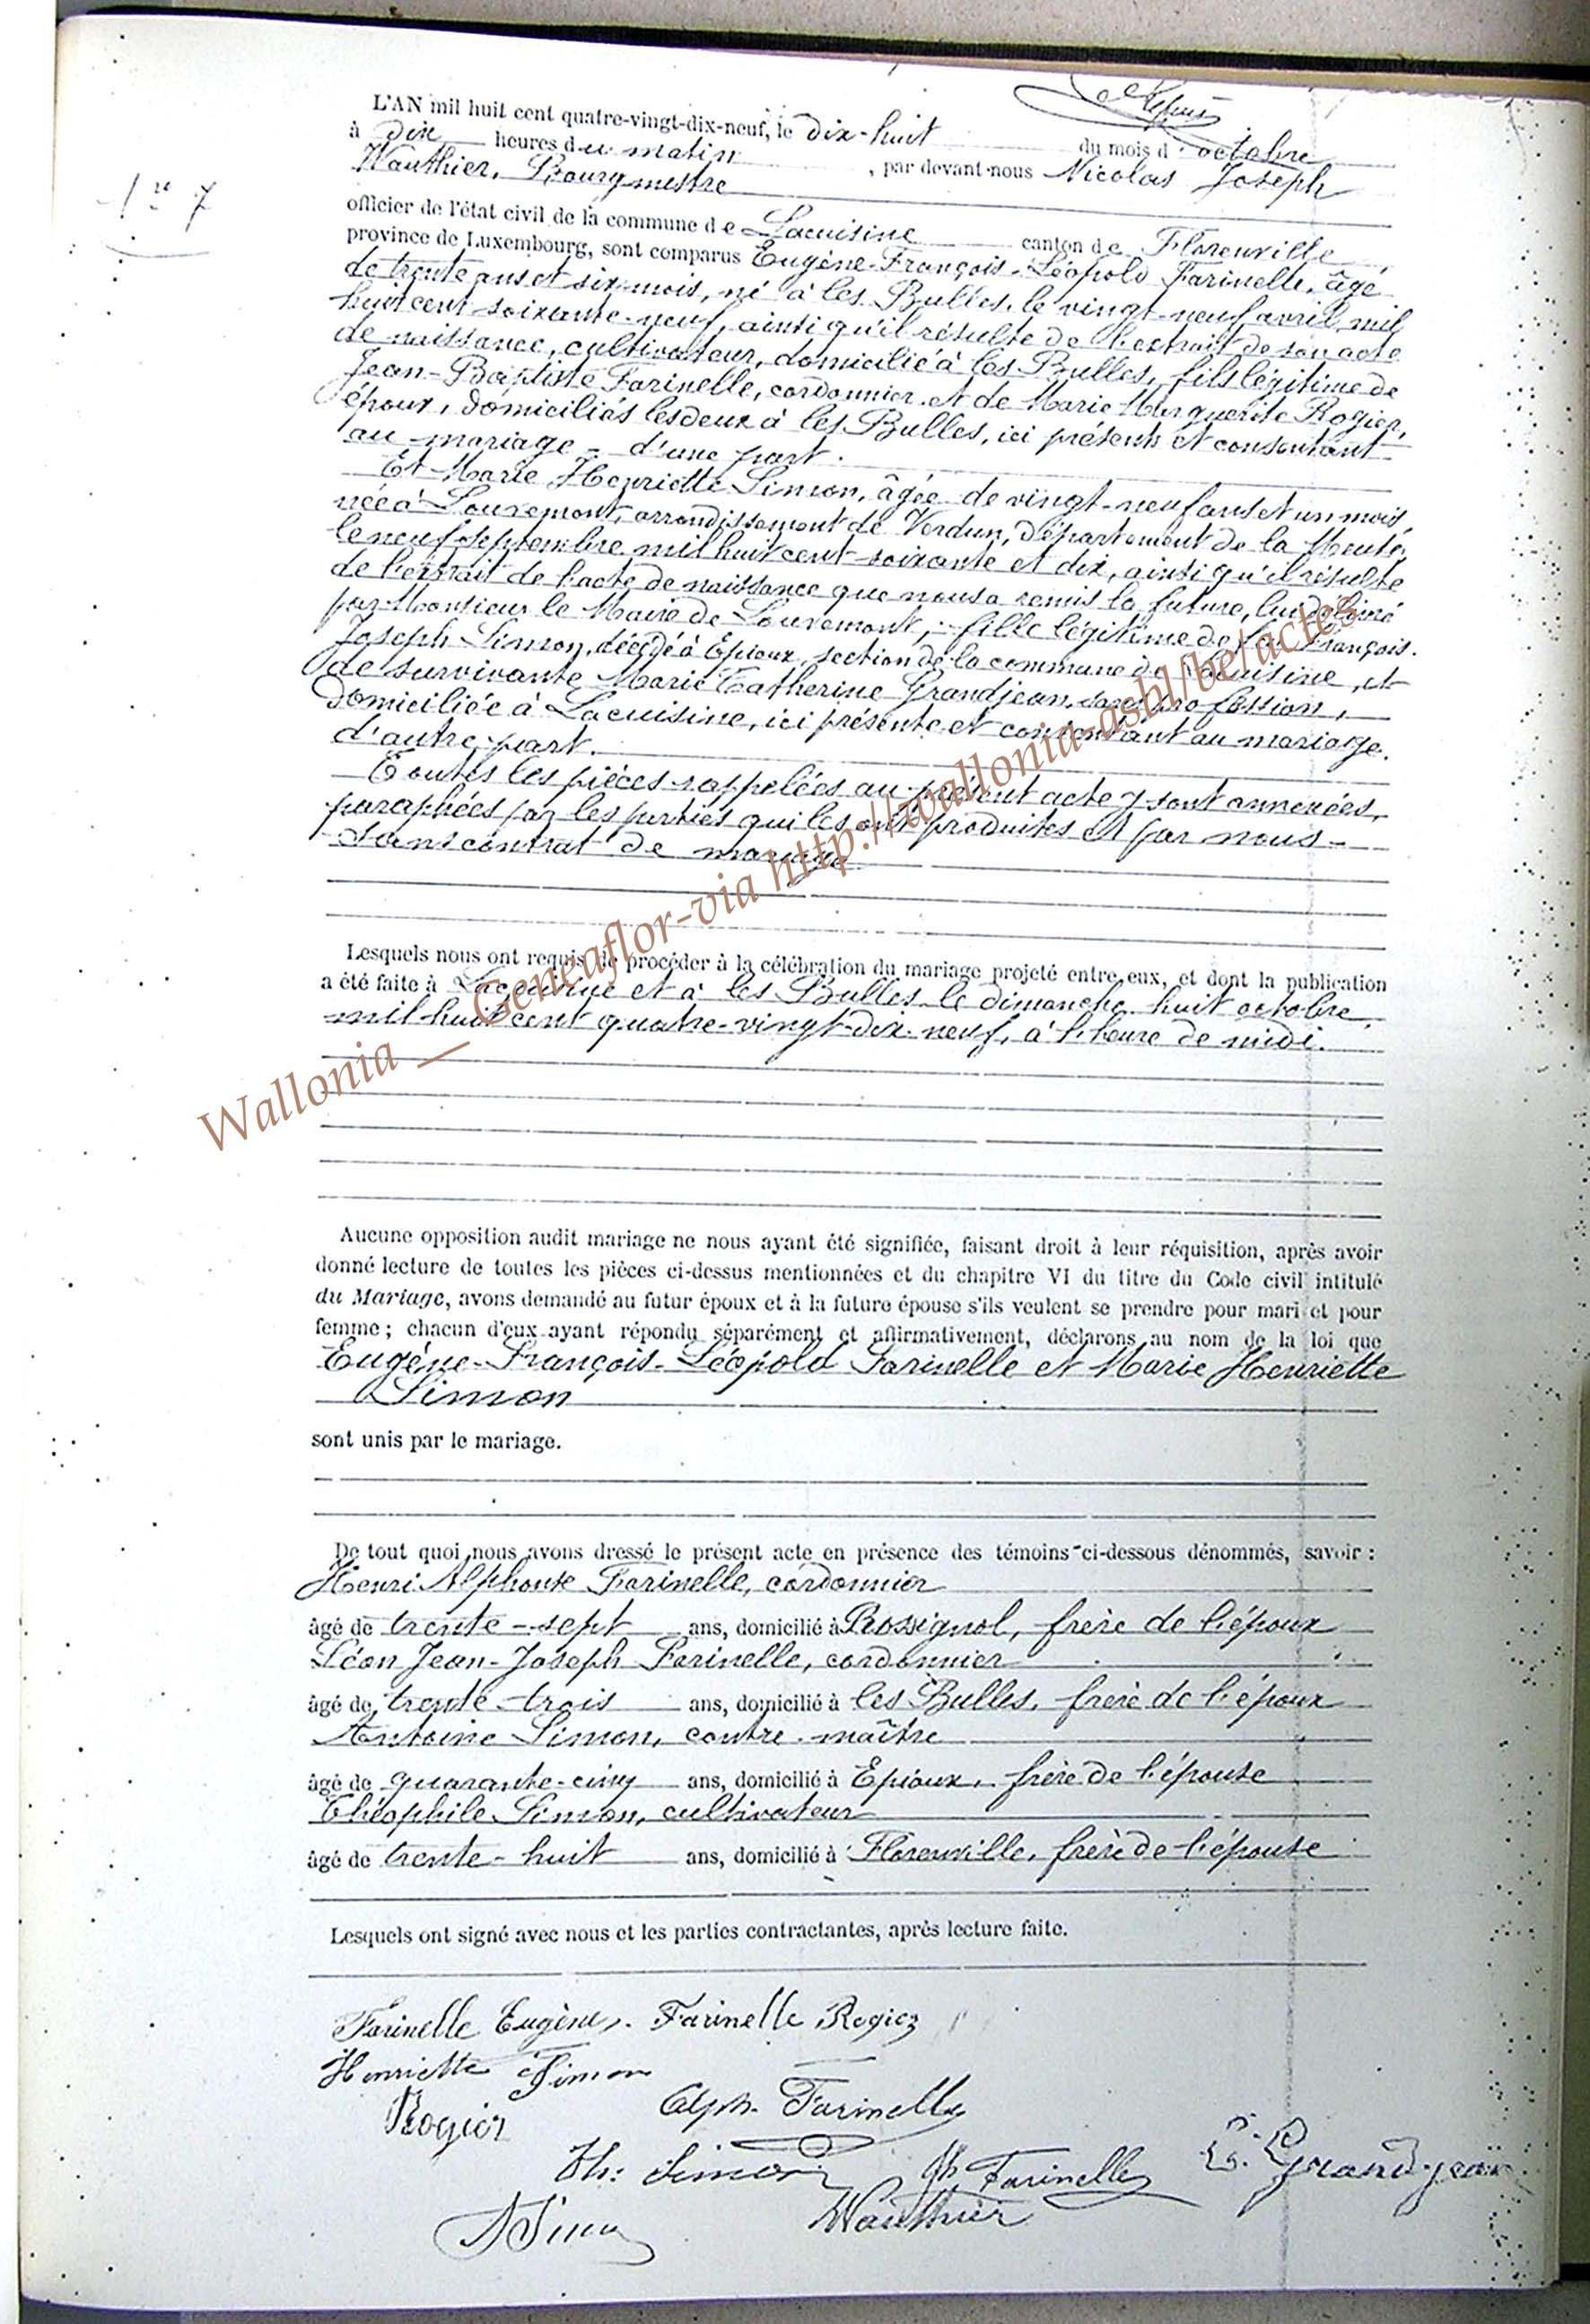 L'AN mil huit cent quatre-vingt-dix-neuf, le dix-huit du mois d'octobre
à dix heures du matin, par devant-nous Nicolas Joseph
Wauthier, Bourgmestre
Nre 7
officier de l'état civil de la commune de Lacuisine canton de Florenville
province de Luxembourg, sont comparus Eugène-François-Léopold Farinelle, âgé
de trente ans et six mois, né à les Bulles, le vingt-neuf avril mil
huit cent soixante-neuf, ainsi qu'il résulte de l'extrait de son acte
de naissance, cultivateur, domicilié à les Bulles, fils légitime de
Jean-Baptiste Farinelle, cordonnier et de Marie Marguerite Rogier,
époux, domiciliés les deux à les Bulles, ici présents et consentant
au mariage - d'une part.
Et Marie Henriette Simon, âgée de vingt-neuf ans et un mois,
née à Louvemont, arrondissement de Verdun, département de la Meuse,
le neuf septembre mil huit cent soixante et dix, ainsi qu'il résulte
de l'extrait de l'acte de naissance que nous a remis la future, lui délivré
par Monsieur le Maire de Louvemont, fille légitime de feu François
Joseph Simon, décédé à Epioux, section de la commune de Lacuisine, et
de survivante Marie Catherine Grandjean, sans profession,
domiciliée à Lacuisine, ici présente et consentant au mariage.
d'autre part.
Toutes les pièces rappelées au présent acte y sont annexées,
paraphées par les parties qui les ont produites et par nous -
sans contrat de mariage
Lesquels nous ont requis de procéder à la célébration du mariage projeté entre eux, et dont la publication
a été faite à Lacuisine et à les Bulles le dimanche huit octobre
mil huit cent quatre-vingt-dix-neuf, à l'heure de midi.
Wallonia _ Geneaflor-via http://wallonia-asbl/be/actes
Aucune opposition audit mariage ne nous ayant été signifiée, faisant droit à leur réquisition, après avoir
donné lecture de toutes les pièces ci-dessus mentionnées et du chapitre VI du titre du Code civil intitulé
du Mariage, avons demandé au futur époux et à la future épouse s'ils veulent se prendre pour mari et pour
femme ; chacun d'eux ayant répondu séparément et affirmativement, déclarons au nom de la loi que
Eugène-François-Léopold Farinelle et Marie Henriette
Simon
sont unis par le mariage.
De tout quoi nous avons dressé le présent acte en présence des témoins ci-dessous dénommés, savoir :
Henri Alphonse Farinelle, cordonnier
âgé de trente-sept ans, domicilié à Rossignol, frère de l'époux
Léon Jean-Joseph Farinelle, cordonnier
âgé de trente-trois ans, domicilié à les Bulles, frère de l'époux
Antoine Simon, contre-maître
âgé de quarante-cinq ans, domicilié à Epioux, frère de l'épouse
Théophile Simon, cultivateur
âgé de trente-huit ans, domicilié à Florenville, frère de l'épouse
Lesquels ont signé avec nous et les parties contractantes, après lecture faite.
Farinelle Eugène. Farinelle Rogier
Henriette Simon
Rogier Alph. Farinelle
Th: Simon Jh Farinelle Grandjean
A Simon Wauthier